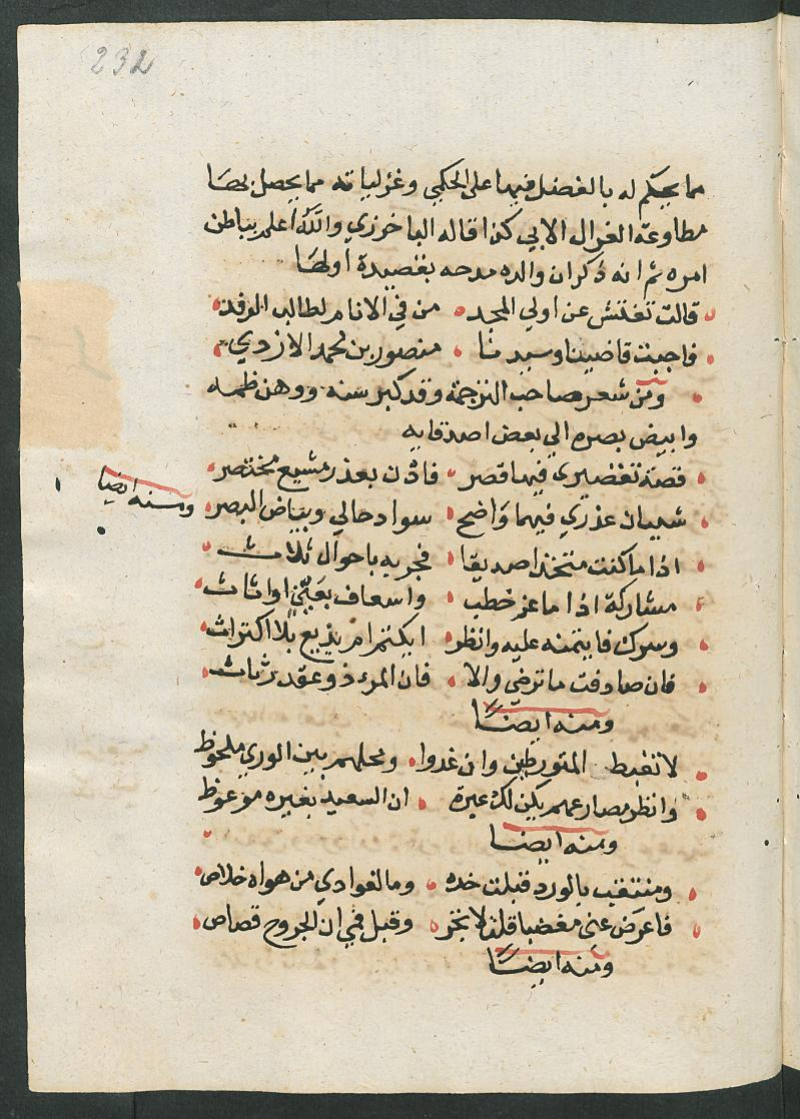 232
مما يحكم له بالفضل فيها على الحكمي وغزلياته مما يحصل بها
مطاوعة الغزال الابي كذا قاله الباخرزي والله اعلم بباطن
امره ثم انه ذكر ان والده مدحه بقصيدة اولها
قالت تفتش عن اولي المجد من في الانام لطالب الرفد
فاجبت قاضينا وسيدنا منصور بن محمد الازدي
ومن شعر صاحب الترجمة وقد كبر سنه ووهن عظمه
وابيض بصره الي بعض اصدقايه
قصة تقصيري فيها قصر فاذن بعذر مشيع مختصر
شيبان عذري فيهما واضح سواد حالي وبياض البصر
ومنه ايضا
اذا ما كنت متخذا صديقا فجربه باحوال ثلاث
مشاركة اذا ما عز خطب واسعاف بعين او اثاث
وسرك فايتمنه عليه وانظر ايكتم ام يذيع بلا اكتراث
فان صادفت ما ترضي والا فان المرء ذو عقد رثاث
ومنه ايضا
لا تغبط المتورطين وان غدوا ومحلهم بين الوري ملحوظ
وانظر مصارعهم يكن لك عبرة ان السعيد بغيره موعوظ
ومنه ايضا
ومنتقب بالورد قبلت خده وما لفوادي من هواه خلاص
فاعرض عني مغضبا قلت لا تجر وقبل فمي ان الجروح قصاص
ومنه ايضا